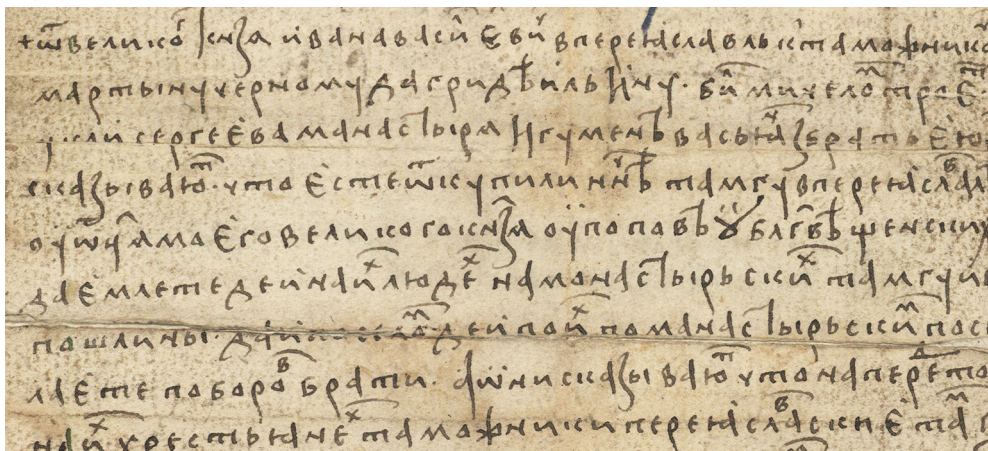 + ѿ великоⷢ҇ кнѧзѧ ивана васиⷧ҇евиⷱ҇ в переꙗславль к таможникоⷨ
мартыну черному да гридѣ ильину· биⷧ҇ ми челоⷨ троеⷰ҇
сергеева манастырѧ игуменъ васьꙗⷩ҇ з братьею
сказываюⷮ· что есте ѿкупили ннⷱ҇ѣ тамгу в переꙗславⷧ
оу ѿца моего великого кнѧзѧ оу поповъ ꙋ благвⷭ҇ѣщенски
даемлете деи на иⷯ людеⷯ на монастырьскиⷯ тамгу и
пошлины· да и деи по иⷯ по манастырьскиⷨ по се
лаете поборовⷡ брати· а ѡни сказываюⷮ что наперетⷣо
на иⷯ хрестьꙗнеⷯ таможники переꙗславⷡские таⷨ